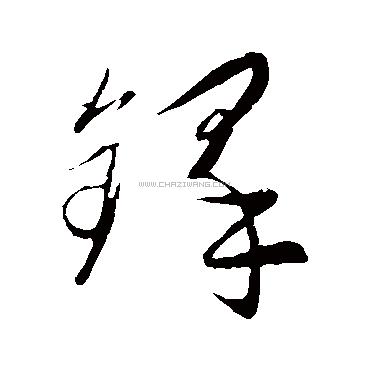 鐸
WWW.CHAZIWANG.COM